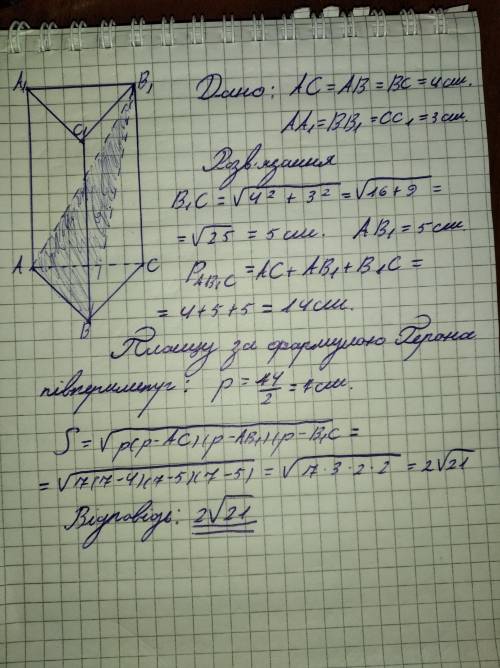 A₁ B₁
C₁
A C
B
Дано: AC = AB = BC = 4 см.
AA₁ = BB₁ = CC₁ = 3 см.
Розв'язання
B₁C = √4² + 3² = √16 + 9 =
= √25 = 5 см. AB₁ = 5 см.
P AB₁C = AC + AB₁ + B₁C =
= 4 + 5 + 5 = 14 см.
Площу за формулою Герона
півпериметр: p = 14/2 = 7 см.
S = √p(p - AC)(p - AB₁)(p - B₁C =
= √7(7-4)(7-5)(7-5) = √7 · 3 · 2 · 2 = 2√21
Відповідь: 2√21